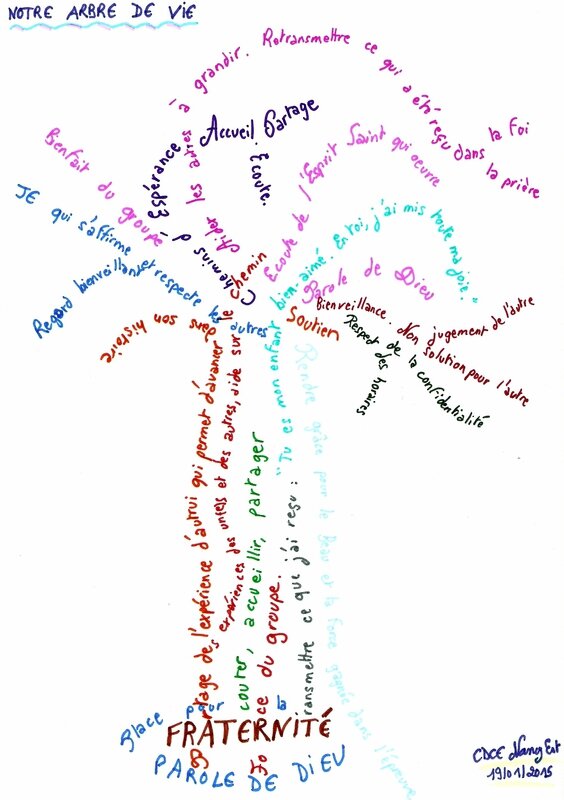 NOTRE ARBRE DE VIE
Aider les autres à grandir. Retransmettre ce qui a été reçu dans la prière
la Foi
Accueil. Partage
Écoute.
Chemins d'Espérance
Bienfait du groupe
JE qui s'affirme et respecte les autres
Regard bienveillant
Ecoute de l'Esprit Saint qui oeuvre
Parole de Dieu
"Tu es mon enfant bien aimé. En toi, j'ai mis toute ma joie."
Soutien
Bienveillance. Non jugement de l'autre
Non solution pour l'autre
Respect de la confidentialité
Respect des horaires
Partage de l'expérience d'autrui qui permet d'avancer dans son histoire
expériences des uns et des autres, aide sur le chemin
couter, accueillir, partager
Force du groupe.
ransmettre ce que j'ai reçu :
Rendre grâce pour le Beau et la force gagnée dans l'épreuve
Place pour la
FRATERNITÉ
PAROLE DE DIEU
CDCE Nancy Est
19/01/2015